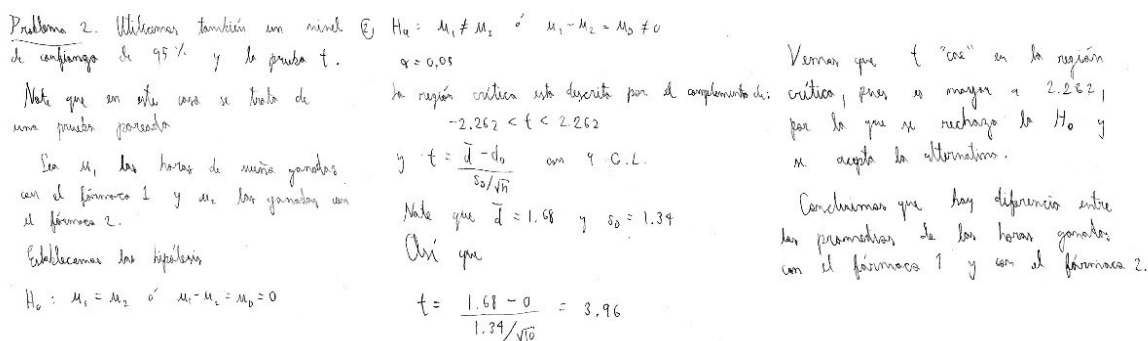 Problema 2. Utilizamos también un nivel
de confianza de 95% y la prueba t.
Note que en este caso se trata de
una prueba pareada
Sea μ₁ las horas de sueño ganadas
con el fármaco 1 y μ₂ las ganadas con
el fármaco 2.
Establecemos las hipótesis
H₀ : μ₁ = μ₂ ó μ₁-μ₂ = μ_D = 0
② Hₐ : μ₁ ≠ μ₂ ó μ₁-μ₂ = μ_D ≠ 0
α = 0,05
La región crítica está descrita por el complemento de:
-2.262 < t < 2.262
y t = (d̄ - d₀)/(s_D/√n) con 9 G.L.
Note que d̄ = 1.68 y s_D = 1.34
Así que
t = (1.68 - 0)/(1.34/√10) = 3.96
Vemos que t "cae" en la región
crítica, pues es mayor a 2.262,
por lo que se rechaza la H₀ y
se acepta la alternativa.
Concluimos que hay diferencia entre
los promedios de las horas ganadas
con el fármaco 1 y con el fármaco 2.